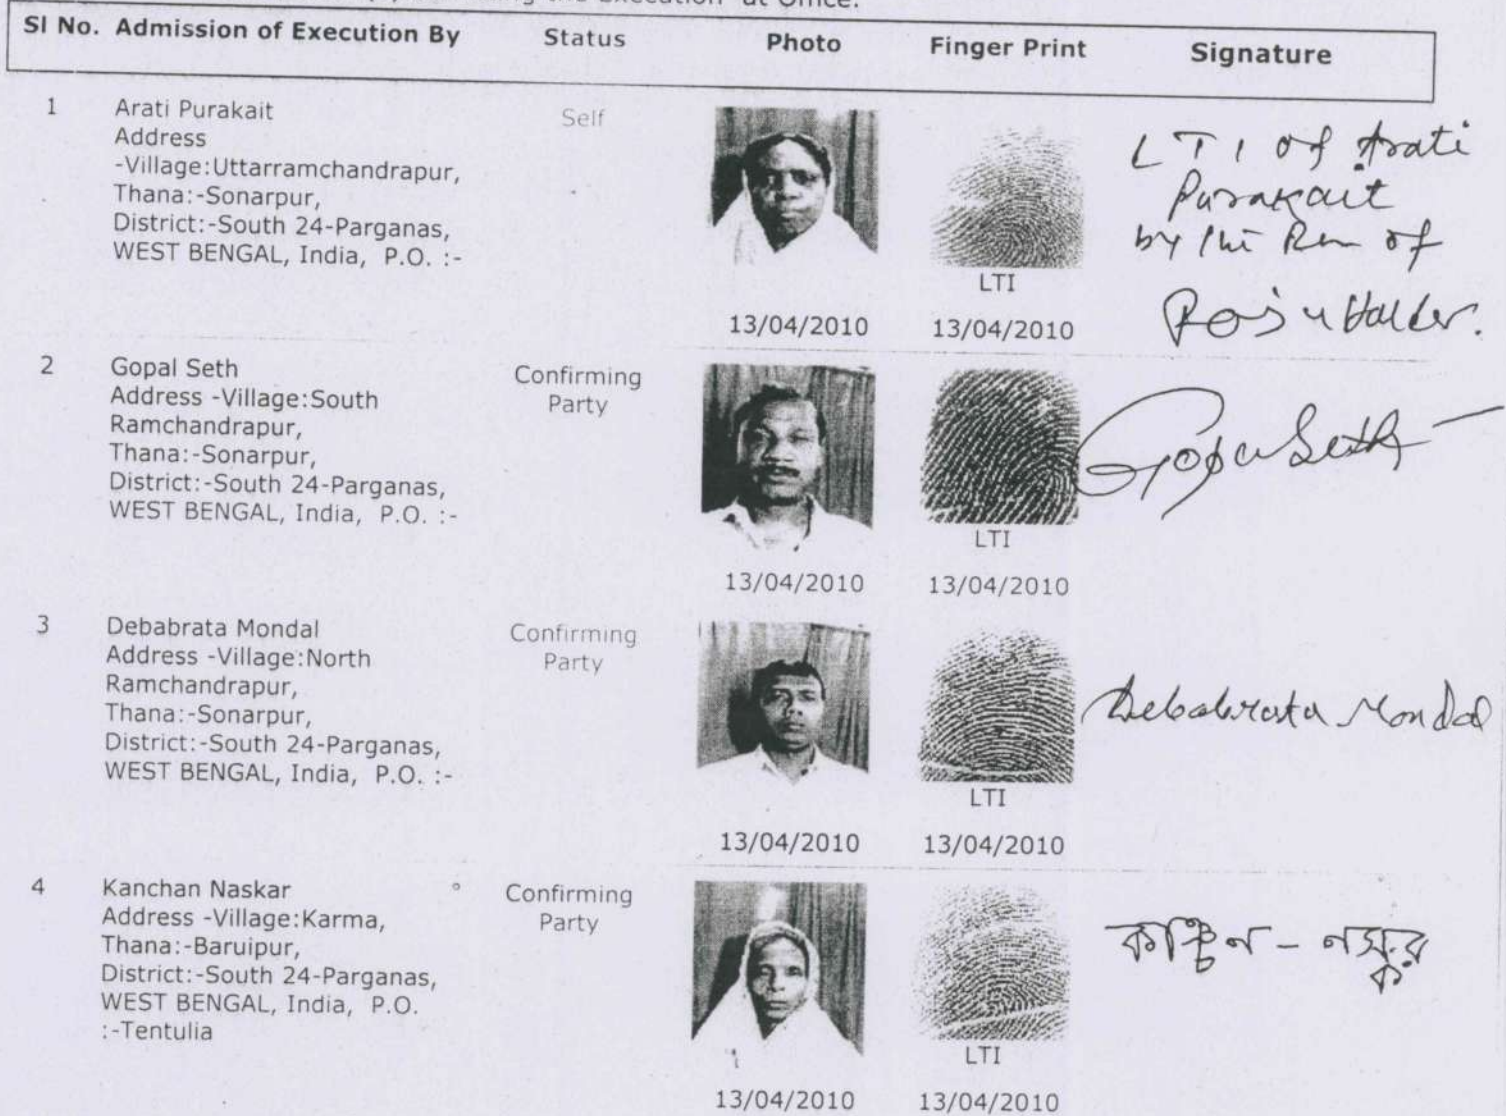 the Execution at Office.
Sl No. Admission of Execution By Status Photo Finger Print Signature
1 Arati Purakait Self
Address
-Village:Uttarramchandrapur,
Thana:-Sonarpur,
District:-South 24-Parganas,
WEST BENGAL, India, P.O. :-
LTI
13/04/2010 13/04/2010
LTI of Arati
Purakait
by the Pen of
Halder.
2 Gopal Seth Confirming
Address -Village:South Party
Ramchandrapur,
Thana:-Sonarpur,
District:-South 24-Parganas,
WEST BENGAL, India, P.O. :-
LTI
13/04/2010 13/04/2010
Gopal Seth
3 Debabrata Mondal Confirming
Address -Village:North Party
Ramchandrapur,
Thana:-Sonarpur,
District:-South 24-Parganas,
WEST BENGAL, India, P.O. :-
LTI
13/04/2010 13/04/2010
Debabrata Mondal
4 Kanchan Naskar Confirming
Address -Village:Karma, Party
Thana:-Baruipur,
District:-South 24-Parganas,
WEST BENGAL, India, P.O.
:-Tentulia
LTI
13/04/2010 13/04/2010
কাঞ্চন - নস্কর